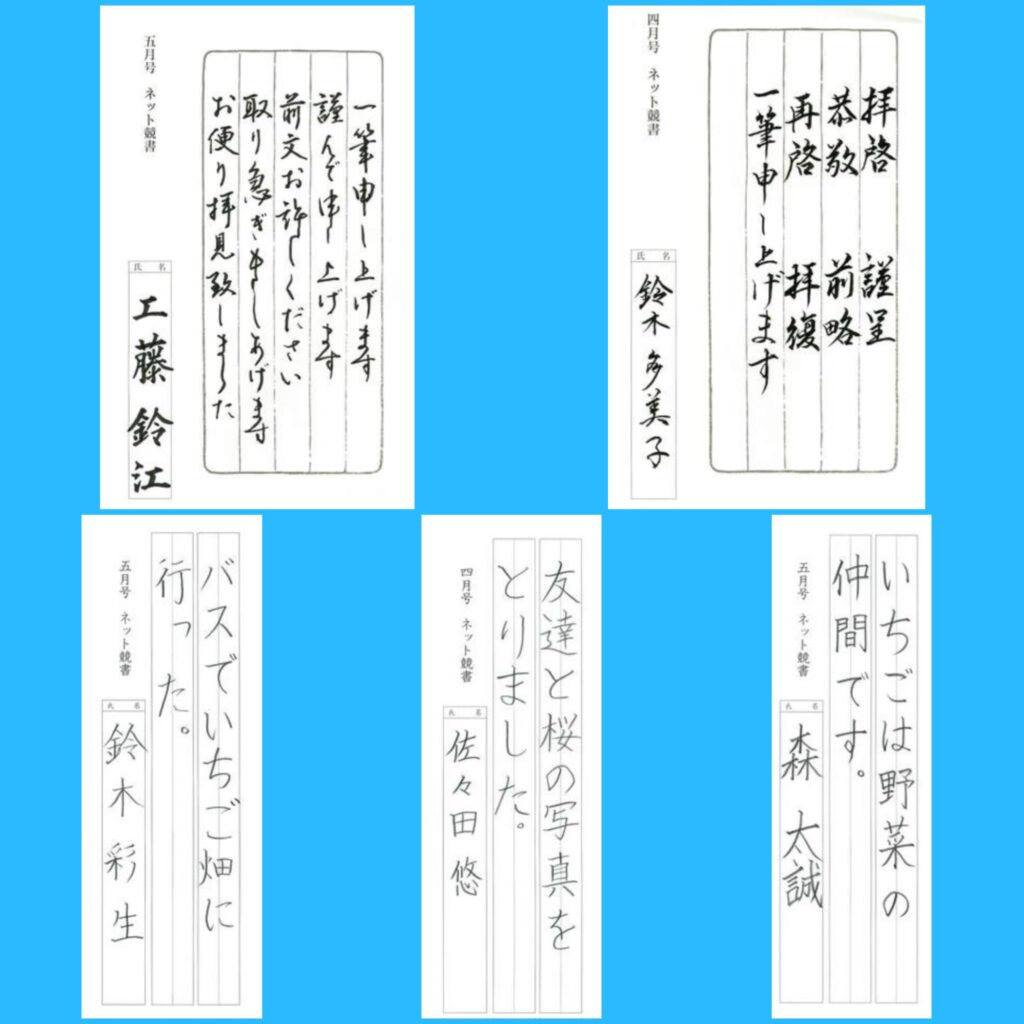 一筆申し上げます
謹んで申し上げます
前文お許しください
取り急ぎ申しあげます
お便り拝見致しました
五月号 ネット競書
氏名
工藤鈴江
拝啓 謹呈
恭敬 前略
再啓 拝復
一筆申し上げます
四月号 ネット競書
氏名
鈴木多美子
バスでいちご畑に
行った。
五月号 ネット競書
氏名
鈴木彩生
友達と桜の写真を
とりました。
四月号 ネット競書
氏名
佐々田悠
いちごは野菜の
仲間です。
五月号 ネット競書
氏名
森太誠